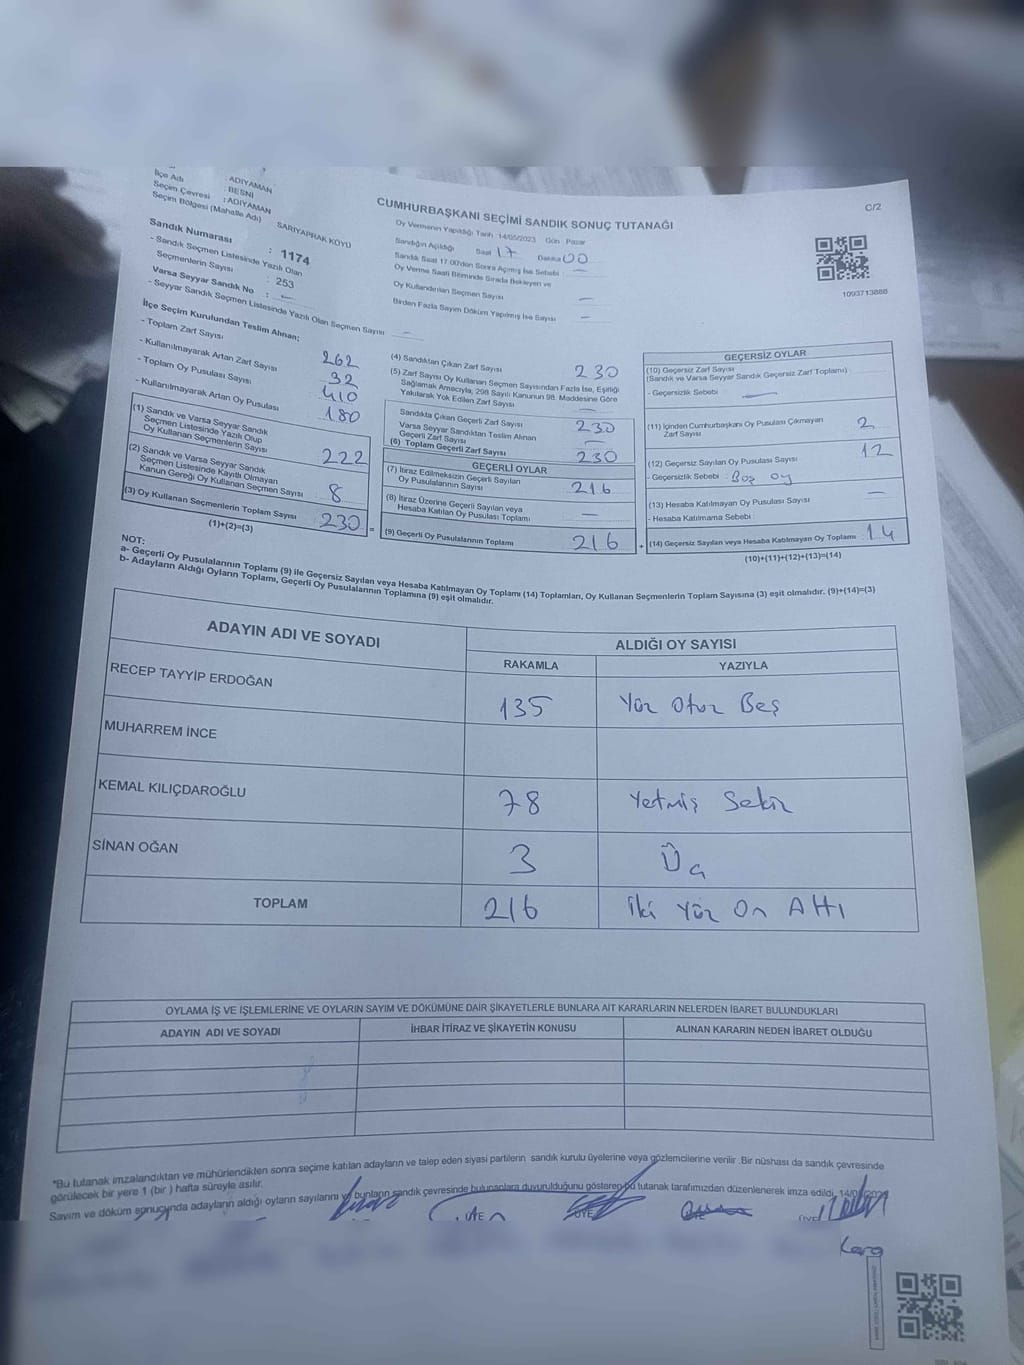 ADIYAMAN
İlçe Adı : BESNİ
Seçim Çevresi : ADIYAMAN
Seçim Bölgesi (Mahalle Adı) : SARIYAPRAK KÖYÜ
Sandık Numarası : 1174
- Sandık Seçmen Listesinde Yazılı Olan
Seçmenlerin Sayısı : 253
Varsa Seyyar Sandık No : —
- Seyyar Sandık Seçmen Listesinde Yazılı Olan Seçmen Sayısı —
CUMHURBAŞKANI SEÇİMİ SANDIK SONUÇ TUTANAĞI
C/2
Oy Vermenin Yapıldığı Tarih 14/05/2023 Gün Pazar
Sandığın Açıldığı Saat 17 Dakika 00
Sandık Saat 17:00'den Sonra Açılmış İse Sebebi : —
Oy Verme Saati Bitiminde Sırada Bekleyen ve
Oy Kullandırılan Seçmen Sayısı —
Birden Fazla Sayım Döküm Yapılmış İse Sayısı —
1093713888
İlçe Seçim Kurulundan Teslim Alınan;
- Toplam Zarf Sayısı 262
- Kullanılmayarak Artan Zarf Sayısı 32
- Toplam Oy Pusulası Sayısı 410
- Kullanılmayarak Artan Oy Pusulası 180
(1) Sandık ve Varsa Seyyar Sandık
Seçmen Listesinde Yazılı Olup
Oy Kullanan Seçmenlerin Sayısı 222
(2) Sandık ve Varsa Seyyar Sandık
Seçmen Listesinde Kayıtlı Olmayan
Kanun Gereği Oy Kullanan Seçmen Sayısı 8
(3) Oy Kullanan Seçmenlerin Toplam Sayısı 230 =
(1)+(2)=(3)
(4) Sandıktan Çıkan Zarf Sayısı 230
(5) Zarf Sayısı Oy Kullanan Seçmen Sayısından Fazla İse, Eşitliği
Sağlamak Amacıyla, 298 Sayılı Kanunun 98. Maddesine Göre
Yakılarak Yok Edilen Zarf Sayısı —
Sandıkta Çıkan Geçerli Zarf Sayısı 230
Varsa Seyyar Sandıktan Teslim Alınan
Geçerli Zarf Sayısı —
(6) Toplam Geçerli Zarf Sayısı 230
GEÇERLİ OYLAR
(7) İtiraz Edilmeksizin Geçerli Sayılan
Oy Pusulalarının Sayısı 216
(8) İtiraz Üzerine Geçerli Sayılan veya
Hesaba Katılan Oy Pusulası Toplamı —
(9) Geçerli Oy Pusulalarının Toplamı 216 +
GEÇERSİZ OYLAR
(10) Geçersiz Zarf Sayısı
(Sandık ve Varsa Seyyar Sandık Geçersiz Zarf Toplamı)
- Geçersizlik Sebebi : —
(11) İçinden Cumhurbaşkanı Oy Pusulası Çıkmayan
Zarf Sayısı 2
(12) Geçersiz Sayılan Oy Pusulası Sayısı 12
- Geçersizlik Sebebi : Boş oy
(13) Hesaba Katılmayan Oy Pusulası Sayısı —
- Hesaba Katılmama Sebebi :
(14) Geçersiz Sayılan veya Hesaba Katılmayan Oy Toplamı 14
(10)+(11)+(12)+(13)=(14)
NOT:
a- Geçerli Oy Pusulalarının Toplamı (9) ile Geçersiz Sayılan veya Hesaba Katılmayan Oy Toplamı (14) Toplamları, Oy Kullanan Seçmenlerin Toplam Sayısına (3) eşit olmalıdır. (9)+(14)=(3)
b- Adayların Aldığı Oyların Toplamı, Geçerli Oy Pusulalarının Toplamına (9) eşit olmalıdır.
ADAYIN ADI VE SOYADI ALDIĞI OY SAYISI
RAKAMLA YAZIYLA
RECEP TAYYİP ERDOĞAN 135 Yüz Otuz Beş
MUHARREM İNCE
KEMAL KILIÇDAROĞLU 78 Yetmiş Sekiz
SİNAN OĞAN 3 Üç
TOPLAM 216 İki Yüz On Altı
OYLAMA İŞ VE İŞLEMLERİNE VE OYLARIN SAYIM VE DÖKÜMÜNE DAİR ŞİKAYETLERLE BUNLARA AİT KARARLARIN NELERDEN İBARET BULUNDUKLARI
ADAYIN ADI VE SOYADI İHBAR İTİRAZ VE ŞİKAYETİN KONUSU ALINAN KARARIN NEDEN İBARET OLDUĞU
*Bu tutanak imzalandıktan ve mühürlendikten sonra seçime katılan adayların ve talep eden siyasi partilerin sandık kurulu üyelerine veya gözlemcilerine verilir. Bir nüshası da sandık çevresinde
görülecek bir yere 1 (bir) hafta süreyle asılır.
Sayım ve döküm sonucunda adayların aldığı oyların sayılarını ve bunların sandık çevresinde bulunanlara duyurulduğunu gösteren bu tutanak tarafımızdan düzenlenerek imza edildi.
ÜYE ÜYE ÜYE